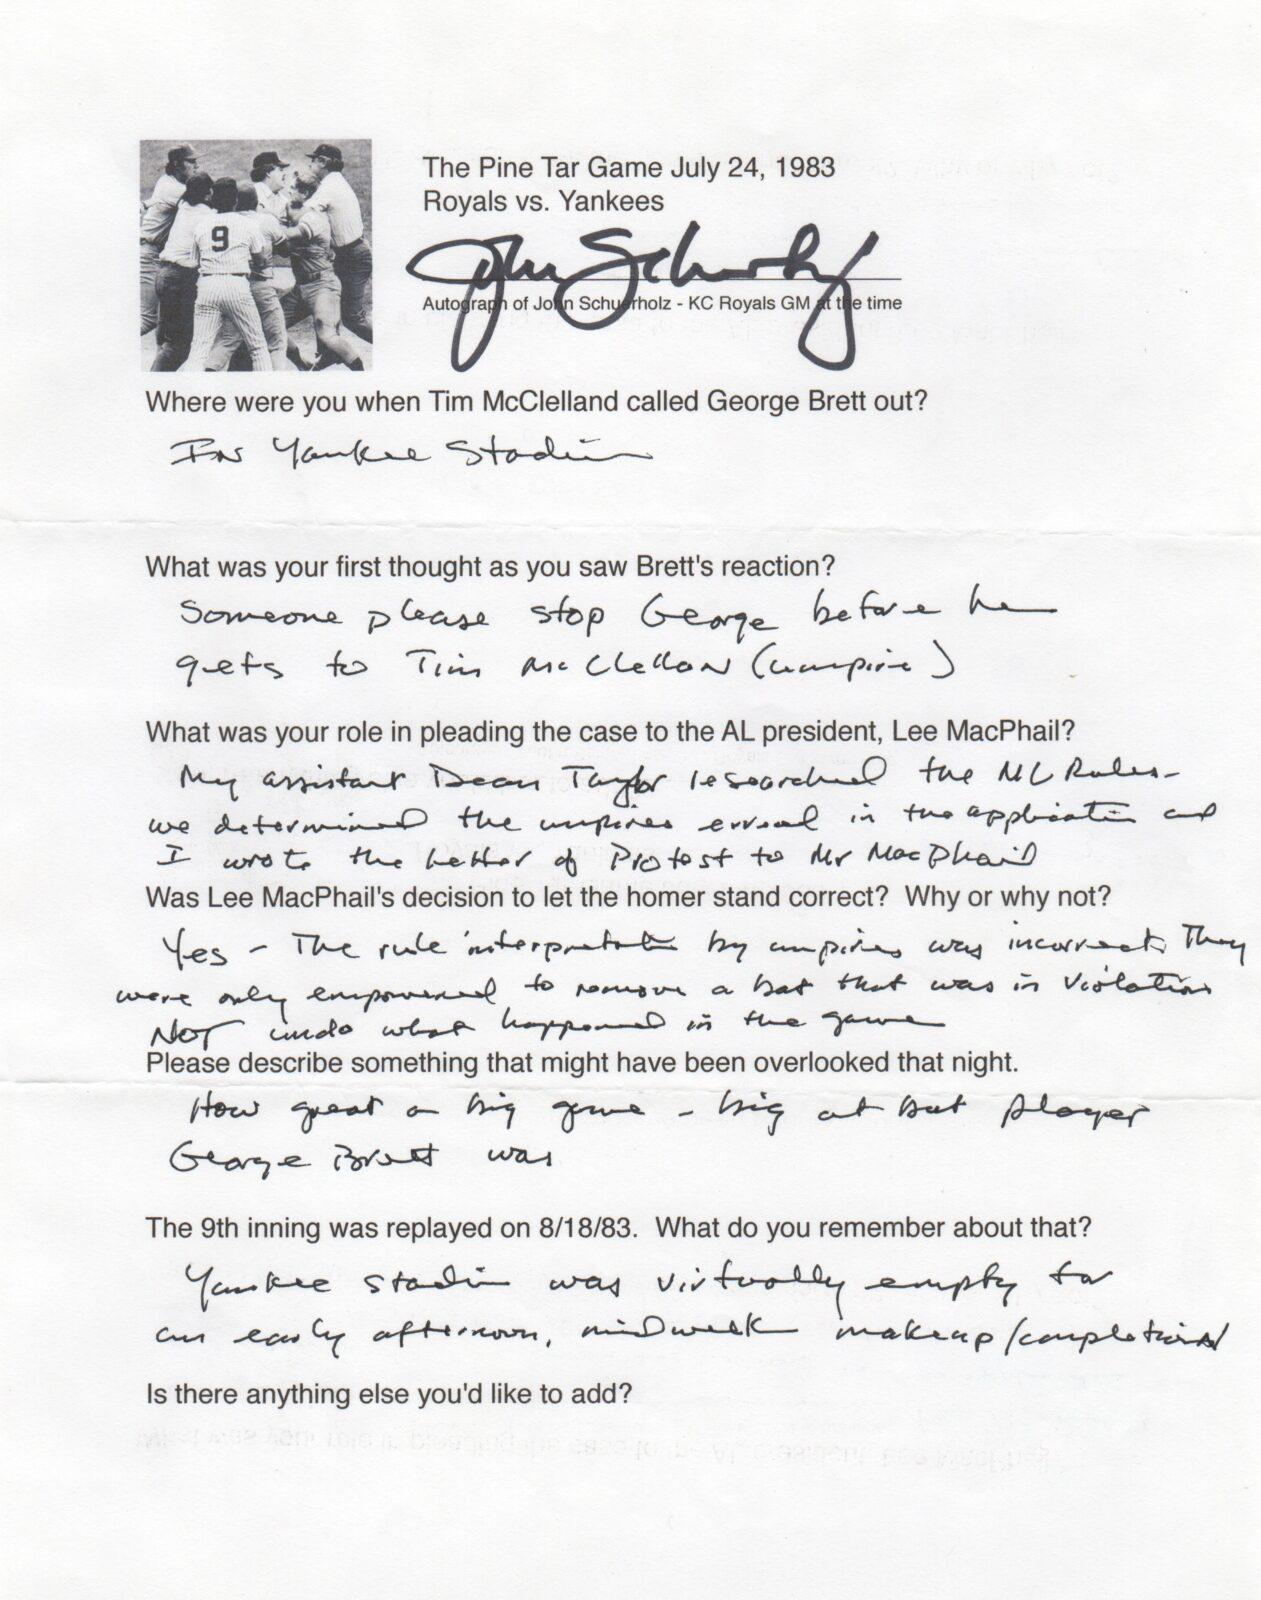 The Pine Tar Game July 24, 1983
Royals vs. Yankees
9
John Schuerholz
Autograph of John Schuerholz - KC Royals GM at the time
Where were you when Tim McClelland called George Brett out?
In Yankee Stadium
What was your first thought as you saw Brett's reaction?
Someone please stop George before he
gets to Tim McClellan (umpire)
What was your role in pleading the case to the AL president, Lee MacPhail?
My assistant Dean Taylor researched the ML Rules -
we determined the umpires erred in the application and
I wrote the letter of Protest to Mr MacPhail
Was Lee MacPhail's decision to let the homer stand correct? Why or why not?
Yes - The rule interpretation by umpires was incorrect. They
were only empowered to remove a bat that was in violation
NOT undo what happened in the game
Please describe something that might have been overlooked that night.
How great a big game - big at bat player
George Brett was
The 9th inning was replayed on 8/18/83. What do you remember about that?
Yankee Stadium was virtually empty for
an early afternoon, midweek makeup/completion
Is there anything else you'd like to add?